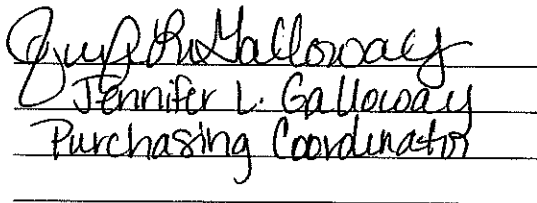 Jennifer L. Galloway
Jennifer L. Galloway
Purchasing Coordinator